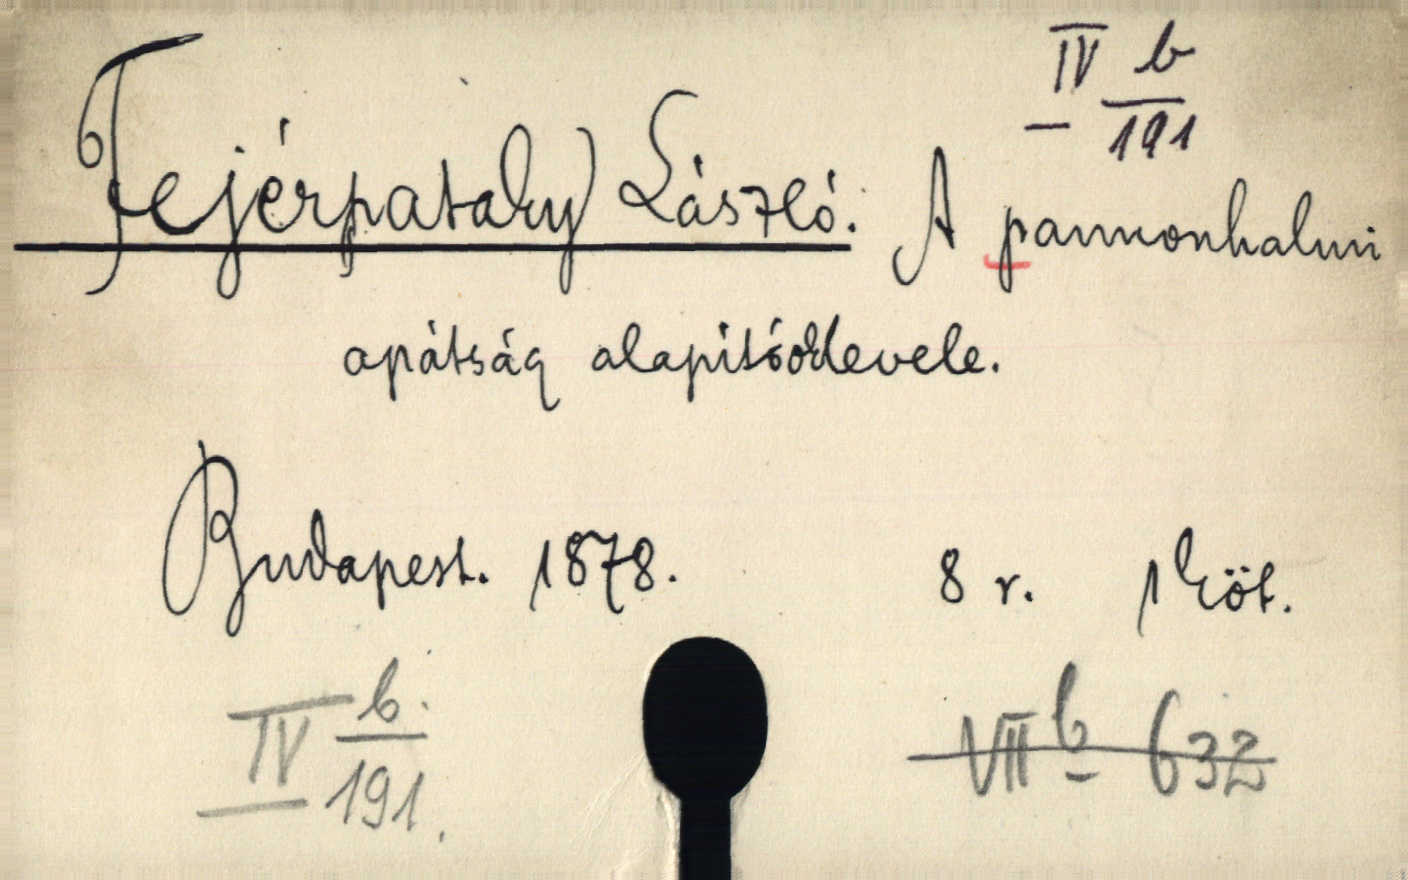 IV b
191
Fejérpataky László. A pannonhalmi
apátság alapítóoklevele.
Budapest. 1878. 8 r. 1 köt.
IV b. VII b 632
191.